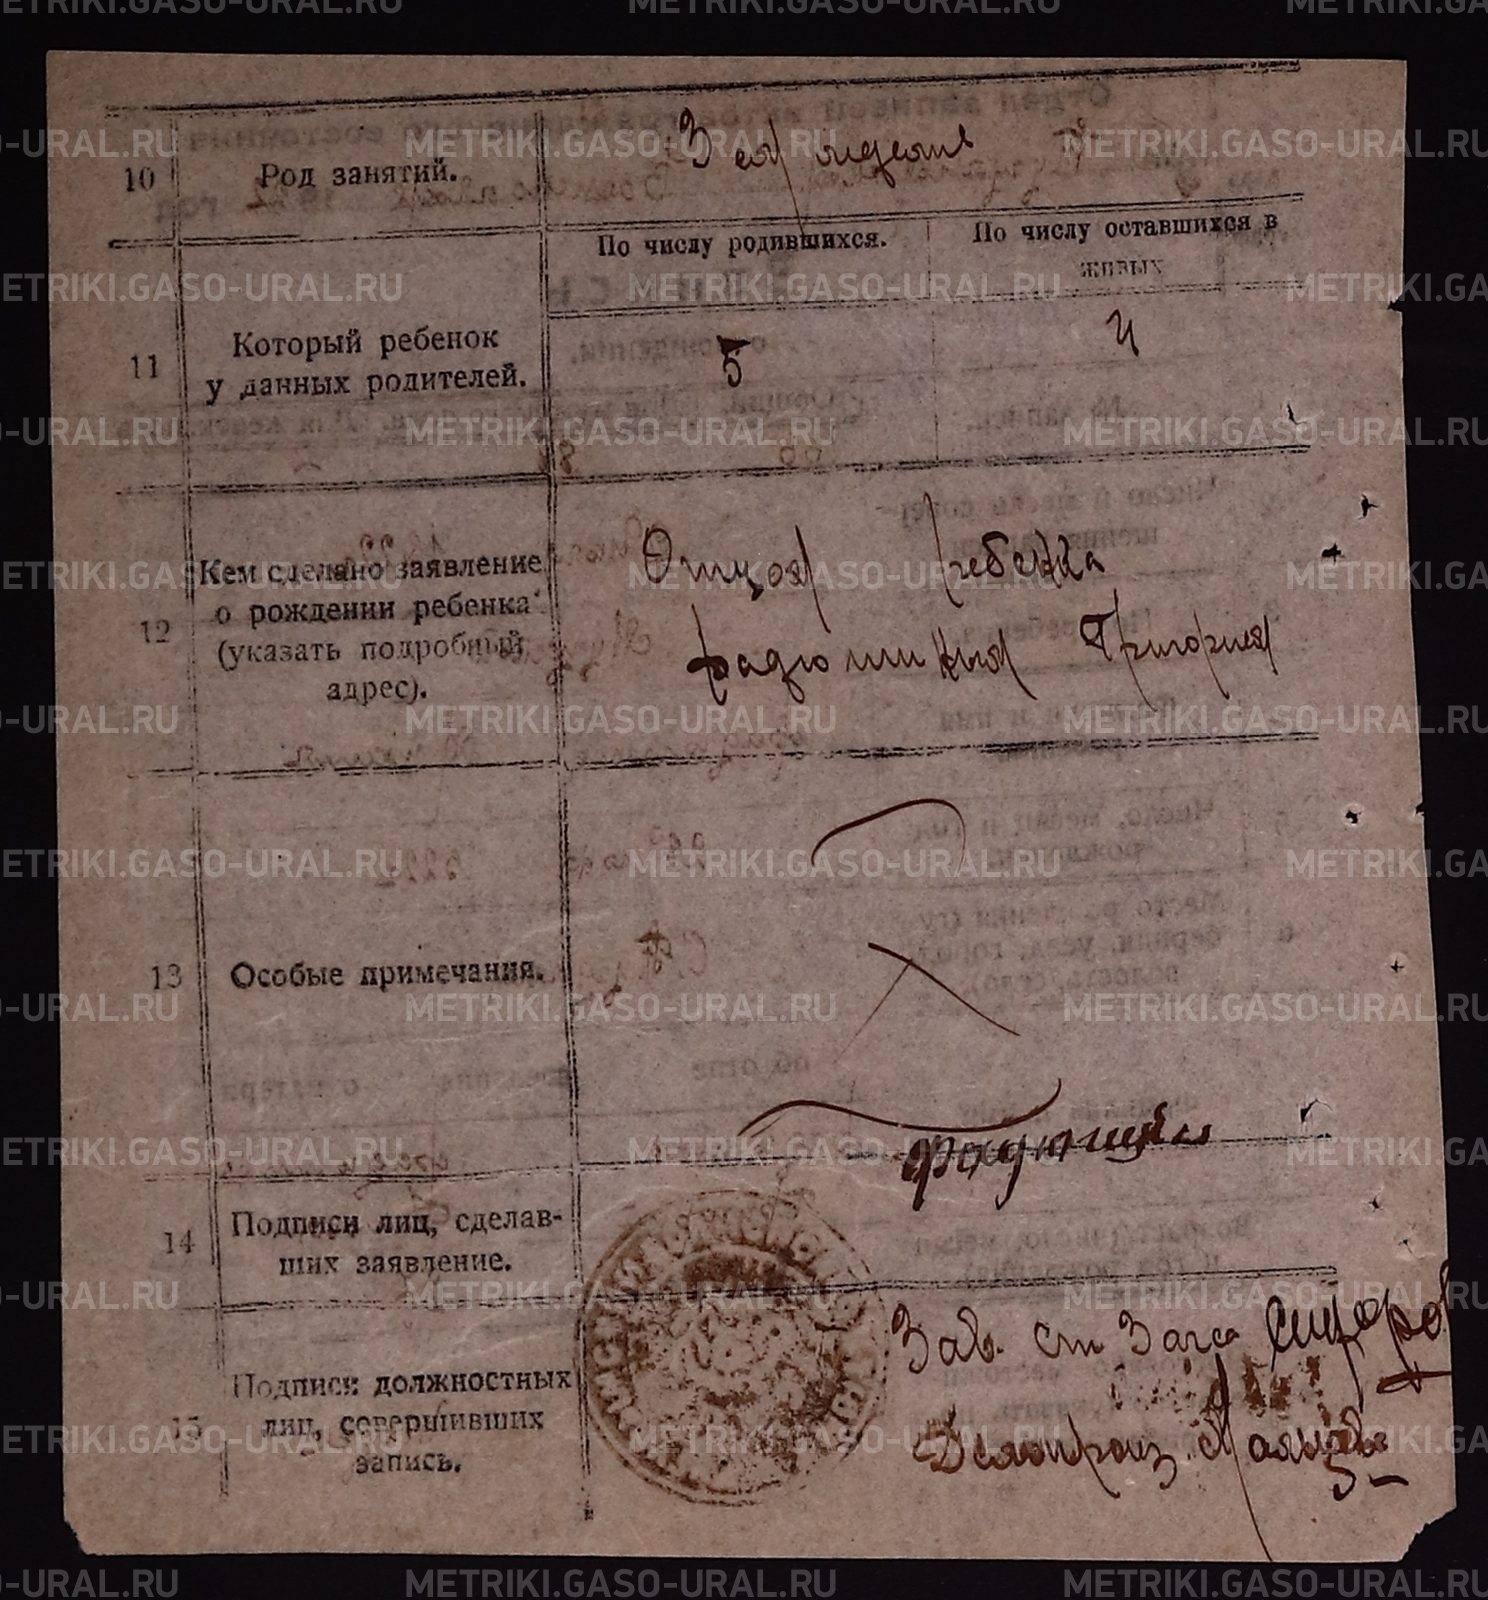 10 Род занятий. Земледелие
По числу родившихся. По числу оставшихся в
живых
11 Который ребенок
у данных родителей. 5 4
12 Кем сделано заявление
о рождении ребенка
(указать подробный
адрес). Отцом ребенка
Фадюшиным Григорием
13 Особые примечания.
14 Подписи лиц, сделав-
ших заявление. Фадюшин
15 Подписи должностных
лиц, совершивших
запись. Зав. ст Загса
Делопроиз
METRIKI.GASO-URAL.RU